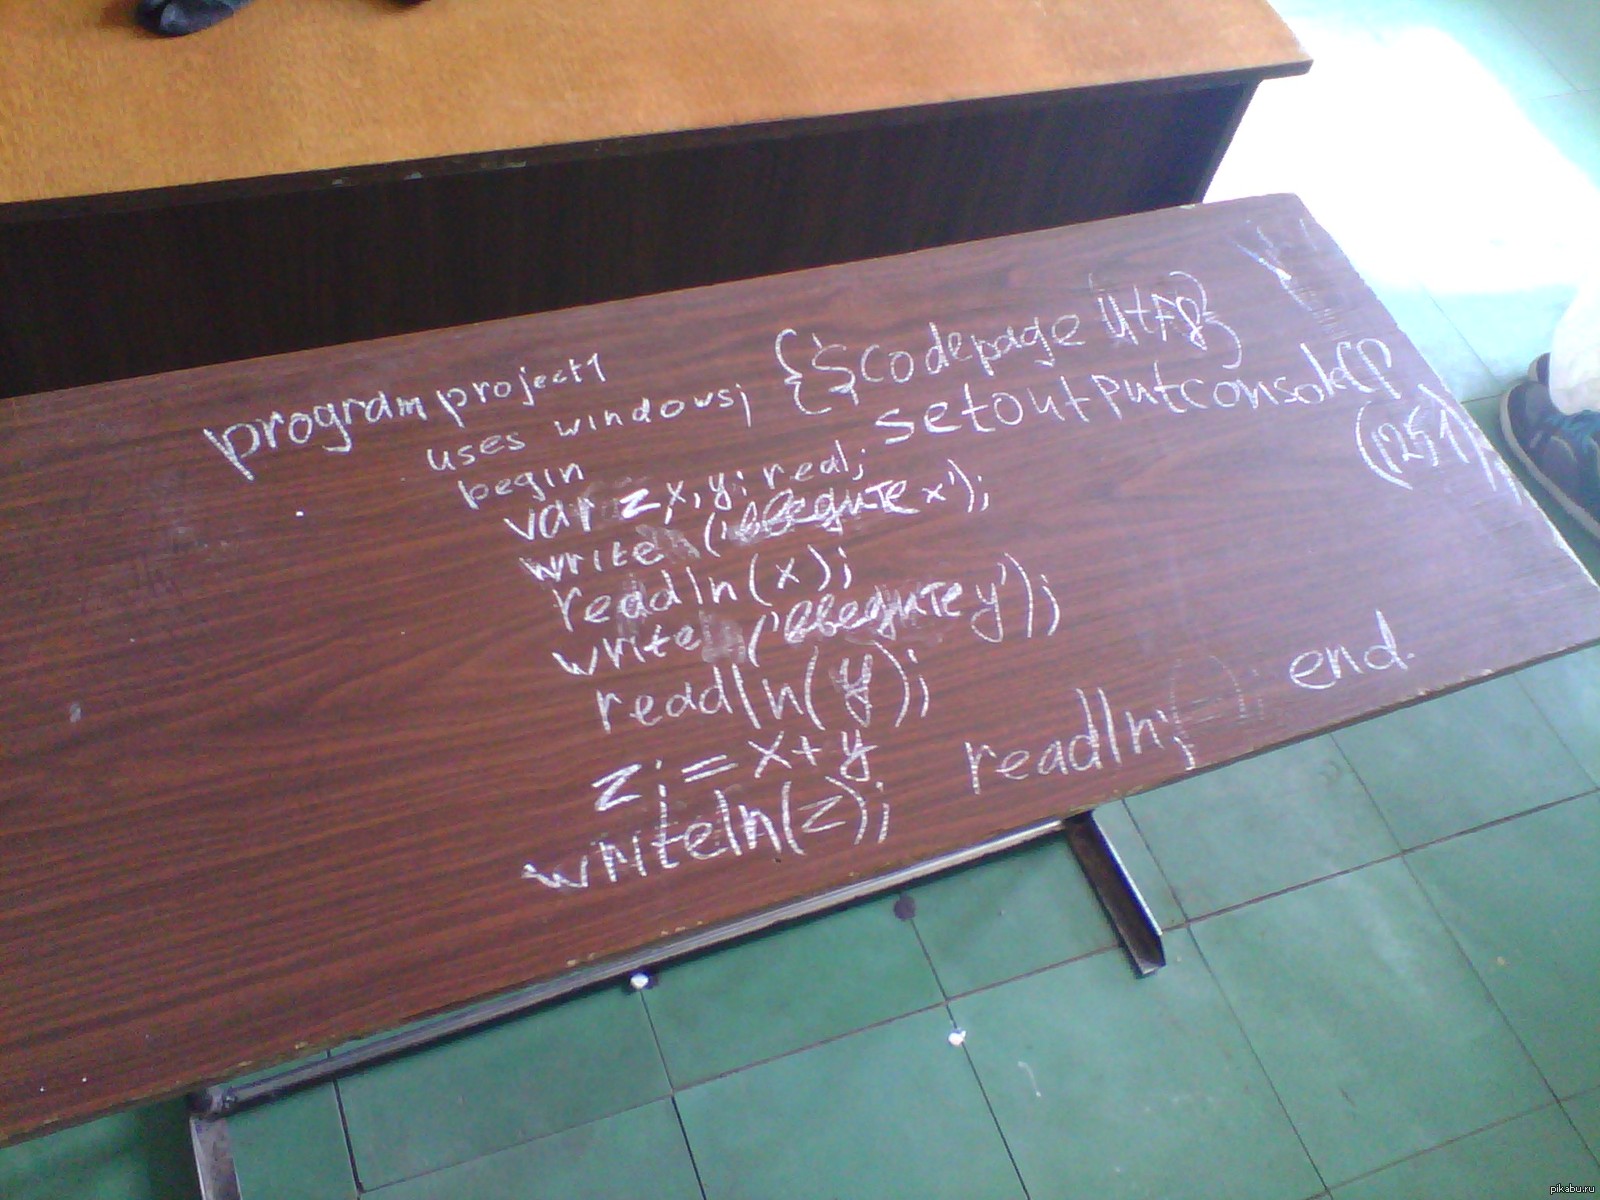 program project1
uses windows; {$codepage utf8}
begin setoutputconsoleCP
(1251);
var z x, y: real;
write ('введите x');
readln(x);
write ('введите y');
readln(y);
z:=x+y
writeln(z); readln; end.
pikabu.ru